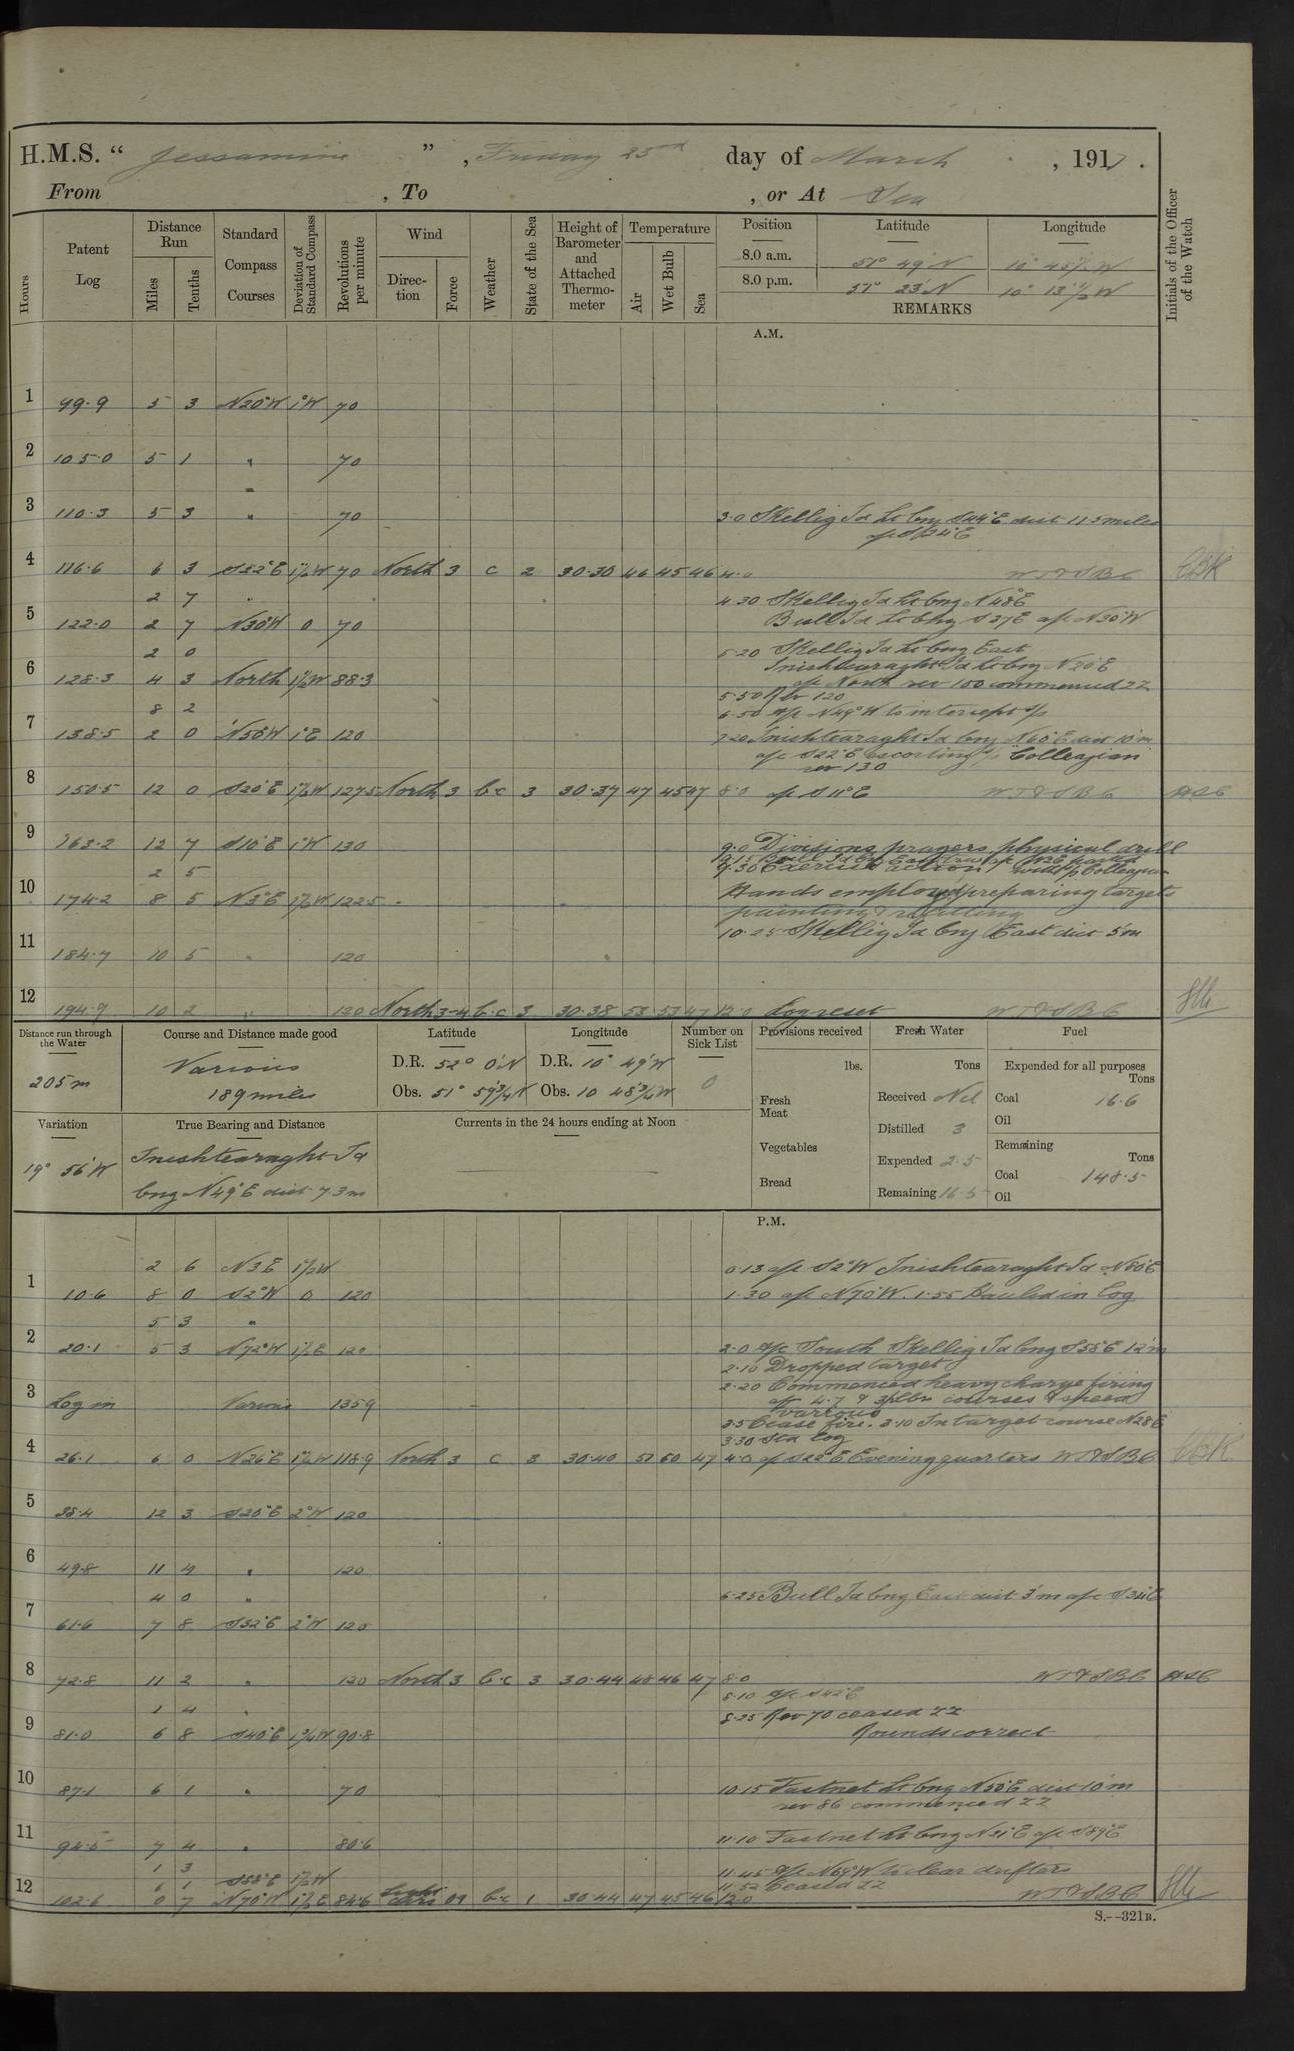 H.M.S. “ Jessamine ” , Friday 23rd day of March , 1917 .
From , To , or At Sea
Hours
Patent Log
Distance Run
Miles
Tenths
Standard Compass Courses
Deviation of Standard Compass
Revolutions per minute
Wind
Direction
Force
Weather
State of the Sea
Height of Barometer and Attached Thermometer
Temperature
Air
Wet Bulb
Sea
Position Latitude Longitude
8.0 a.m. 51° 49' N 10° 45½' W
8.0 p.m. 51° 23' N 10° 13½' W
REMARKS
Initials of the Officer of the Watch
A.M.
1 99.9 5 3 N20°W 1°W 70
2 105.0 5 1 " 70
3 110.3 5 3 " 70 3.0 Skellig Id Lt bng S44°E dist 11.5 miles
a/c S24°E
4 116.6 6 3 S22°E 1½W 70 North 3 c 2 30.30 46 45 46 4.0 W T & S B C
2 7 " 4.30 Skellig Id Lt bng N48°E
5 122.0 2 7 N30°W 0 70 Bull Id Lt bng S27E a/c N30°W
2 0 5.20 Skellig Id Lt bng East
Inishtearaght Id Lt bng N20°E
6 128.3 4 3 North 1½W 88.3 a/c North rev 100 commenced ZZ
5.50 Rev 120
8 2 6.50 a/c N49°W to intercept s/s
7 138.5 2 0 N50°W 1°E 120 7.20 Inishtearaght Id bng N60°E dist 10'm
a/c S22°E escorting s/s "Collegian"
rev 130
8 150.5 12 0 S20°E 1½W 127.5 North 3 b.c 3 30.37 47 45 47 8.0 a/c S11°E W T & S B C
9 163.2 12 7 S10°E 1°W 130 9.0 Divisions prayers physical drill
2 5 9.30 Exercise action
10 174.2 8 5 N3°E 1½W 122.5 Hands employed preparing targets
painting & refitting
10.25 Skellig Id bng East dist 5'm
11 184.7 10 5 " 120
12 194.9 10 2 " 120 North 3-4 b.c 3 30.38 53 53 47 12.0 Log reset W T & S B C
Distance run through the Water
205m
Course and Distance made good
Various
189 miles
Latitude
D.R. 52° 0' N
Obs. 51° 59¾' N
Longitude
D.R. 10° 49' W
Obs. 10 48¾' W
Number on Sick List
0
Provisions received
lbs.
Fresh Meat
Vegetables
Bread
Fresh Water
Tons
Received Nil
Distilled 3
Expended 2.5
Remaining 16.5
Fuel
Expended for all purposes
Tons
Coal 16.6
Oil
Remaining
Tons
Coal 148.5
Oil
Variation
19° 56' W
True Bearing and Distance
Inishtearaght Id
bng N49°E dist 7.3m
Currents in the 24 hours ending at Noon
P.M.
2 6 N3E 1½W 0.13 a/c S2°W Inishtearaght Id N80°E
1 10.6 8 0 S2°W 0 120 1.30 a/c N70°W. 1.55 Hauled in log
5 3 "
2 20.1 5 3 N72°W 1½E 120 2.0 a/c South Skellig Id bng S55°E 12'm
2.10 Dropped target
2.20 Commenced heavy charge firing
3 Log in Various 135.9 4.7 & 3pdr courses & speed
various
3.5 Cease fire. 3.10 In target course N28E
3.30 Std log
4 26.1 6 0 N26°E 1½W 118.9 North 3 c 3 30.40 51 50 47 4.0 a/c S22°E Evening quarters W T & S B C
5 38.4 12 3 S20°E 2°W 120
6 49.8 11 4 " 120
4 0 " 6.25 Bull Id bng East dist 3'm a/c S34°E
7 61.6 7 8 S32°E 2°W 120
8 72.8 11 2 " 120 North 3 b.c 3 30.44 48 46 47 8.0 W T & S B C
8.10 a/c S42°E
1 4 " 8.25 Rev 70 ceased ZZ
9 81.0 6 8 S40°E 1¾W 90.8 Rounds correct
10 87.1 6 1 " 70 10.15 Fastnet Lt bng N55°E dist 10'm
rev 86 commenced ZZ
11 94.5 7 4 " 80.6 11.10 Fastnet Lt bng N31°E a/c S89°E
1 3 11.45 a/c N69°W to clear drifters
6 1 S88°E 1½W 11.52 Ceased ZZ
12 102.6 0 7 N70°W 1½E 84.6 Light airs 01 b.c 1 30.44 47 45 46 12.0 W T & S B C
S.--321B.